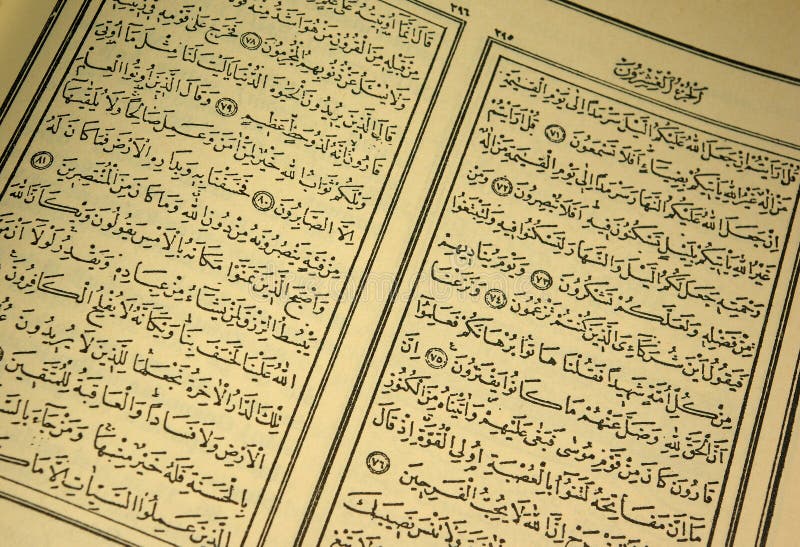 ٣٩٥
الجزء العشرون
قُلْ اَرَاَيْتُمْ اِنْ جَعَلَ اللّٰهُ عَلَيْكُمُ الَّيْلَ سَرْمَدًا اِلٰى يَوْمِ الْقِيٰمَةِ
مَنْ اِلٰهٌ غَيْرُ اللّٰهِ يَأْتِيكُمْ بِضِيَاءٍ اَفَلَا تَسْمَعُونَ ٧١ قُلْ اَرَاَيْتُمْ
اِنْ جَعَلَ اللّٰهُ عَلَيْكُمُ النَّهَارَ سَرْمَدًا اِلٰى يَوْمِ الْقِيٰمَةِ مَنْ اِلٰهٌ
غَيْرُ اللّٰهِ يَأْتِيكُمْ بِلَيْلٍ تَسْكُنُونَ فِيهِ اَفَلَا تُبْصِرُونَ ٧٢ وَمِنْ
رَحْمَتِهِ جَعَلَ لَكُمُ الَّيْلَ وَالنَّهَارَ لِتَسْكُنُوا فِيهِ وَلِتَبْتَغُوا
مِنْ فَضْلِهِ وَلَعَلَّكُمْ تَشْكُرُونَ ٧٣ وَيَوْمَ يُنَادِيهِمْ
فَيَقُولُ اَيْنَ شُرَكَاءِيَ الَّذِينَ كُنْتُمْ تَزْعُمُونَ ٧٤ وَنَزَعْنَا
مِنْ كُلِّ اُمَّةٍ شَهِيدًا فَقُلْنَا هَاتُوا بُرْهَانَكُمْ فَعَلِمُوا
اَنَّ الْحَقَّ لِلّٰهِ وَضَلَّ عَنْهُمْ مَا كَانُوا يَفْتَرُونَ ٧٥ اِنَّ
قَارُونَ كَانَ مِنْ قَوْمِ مُوسٰى فَبَغٰى عَلَيْهِمْ وَاٰتَيْنَاهُ مِنَ الْكُنُوزِ
مَا اِنَّ مَفَاتِحَهُ لَتَنُوءُ بِالْعُصْبَةِ اُولِي الْقُوَّةِ اِذْ قَالَ
تَفْرَحْ اِنَّ اللّٰهَ لَا يُحِبُّ الْفَرِحِينَ ٧٦
وَلَا تَنْسَ نَصِيبَكَ
٣٩٦
قَالَ اِنَّمَا اُوتِيتُهُ عَلٰى عِلْمٍ
مِنْ قَبْلِهِ مِنَ الْقُرُونِ مَنْ هُوَ اَشَدُّ مِنْهُ قُوَّةً
وَلَا يُسْئَلُ عَنْ ذُنُوبِهِمُ الْمُجْرِمُونَ ٧٨ فَخَرَجَ عَلٰى قَوْمِهِ فِي زِينَتِهِ
قَالَ الَّذِينَ يُرِيدُونَ الْحَيٰوةَ الدُّنْيَا يَا لَيْتَ لَنَا مِثْلَ مَا اُوتِيَ
قَارُونُ اِنَّهُ لَذُو حَظٍّ عَظِيمٍ ٧٩ وَقَالَ الَّذِينَ اُوتُوا الْعِلْمَ
وَيْلَكُمْ ثَوَابُ اللّٰهِ خَيْرٌ لِمَنْ اٰمَنَ وَعَمِلَ صَالِحًا وَلَا يُلَقّٰيهَا
اِلَّا الصَّابِرُونَ ٨٠ فَخَسَفْنَا بِهِ وَبِدَارِهِ الْاَرْضَ فَمَا كَانَ لَهُ
مِنْ فِئَةٍ يَنْصُرُونَهُ مِنْ دُونِ اللّٰهِ وَمَا كَانَ مِنَ الْمُنْتَصِرِينَ ٨١
وَاَصْبَحَ الَّذِينَ تَمَنَّوْا مَكَانَهُ بِالْاَمْسِ يَقُولُونَ وَيْكَاَنَّ اللّٰهَ
يَبْسُطُ الرِّزْقَ لِمَنْ يَشَاءُ مِنْ عِبَادِهِ وَيَقْدِرُ لَوْلَا اَنْ مَنَّ
اللّٰهُ عَلَيْنَا لَخَسَفَ بِنَا وَيْكَاَنَّهُ لَا يُفْلِحُ الْكَافِرُونَ
تِلْكَ الدَّارُ الْاٰخِرَةُ نَجْعَلُهَا لِلَّذِينَ لَا يُرِيدُونَ
الْاَرْضِ وَلَا فَسَادًا وَالْعَاقِبَةُ لِلْمُتَّقِينَ
بِالْحَسَنَةِ فَلَهُ خَيْرٌ مِنْهَا وَمَنْ جَاءَ
الَّذِينَ عَمِلُوا السَّيِّاٰتِ اِلَّا مَا